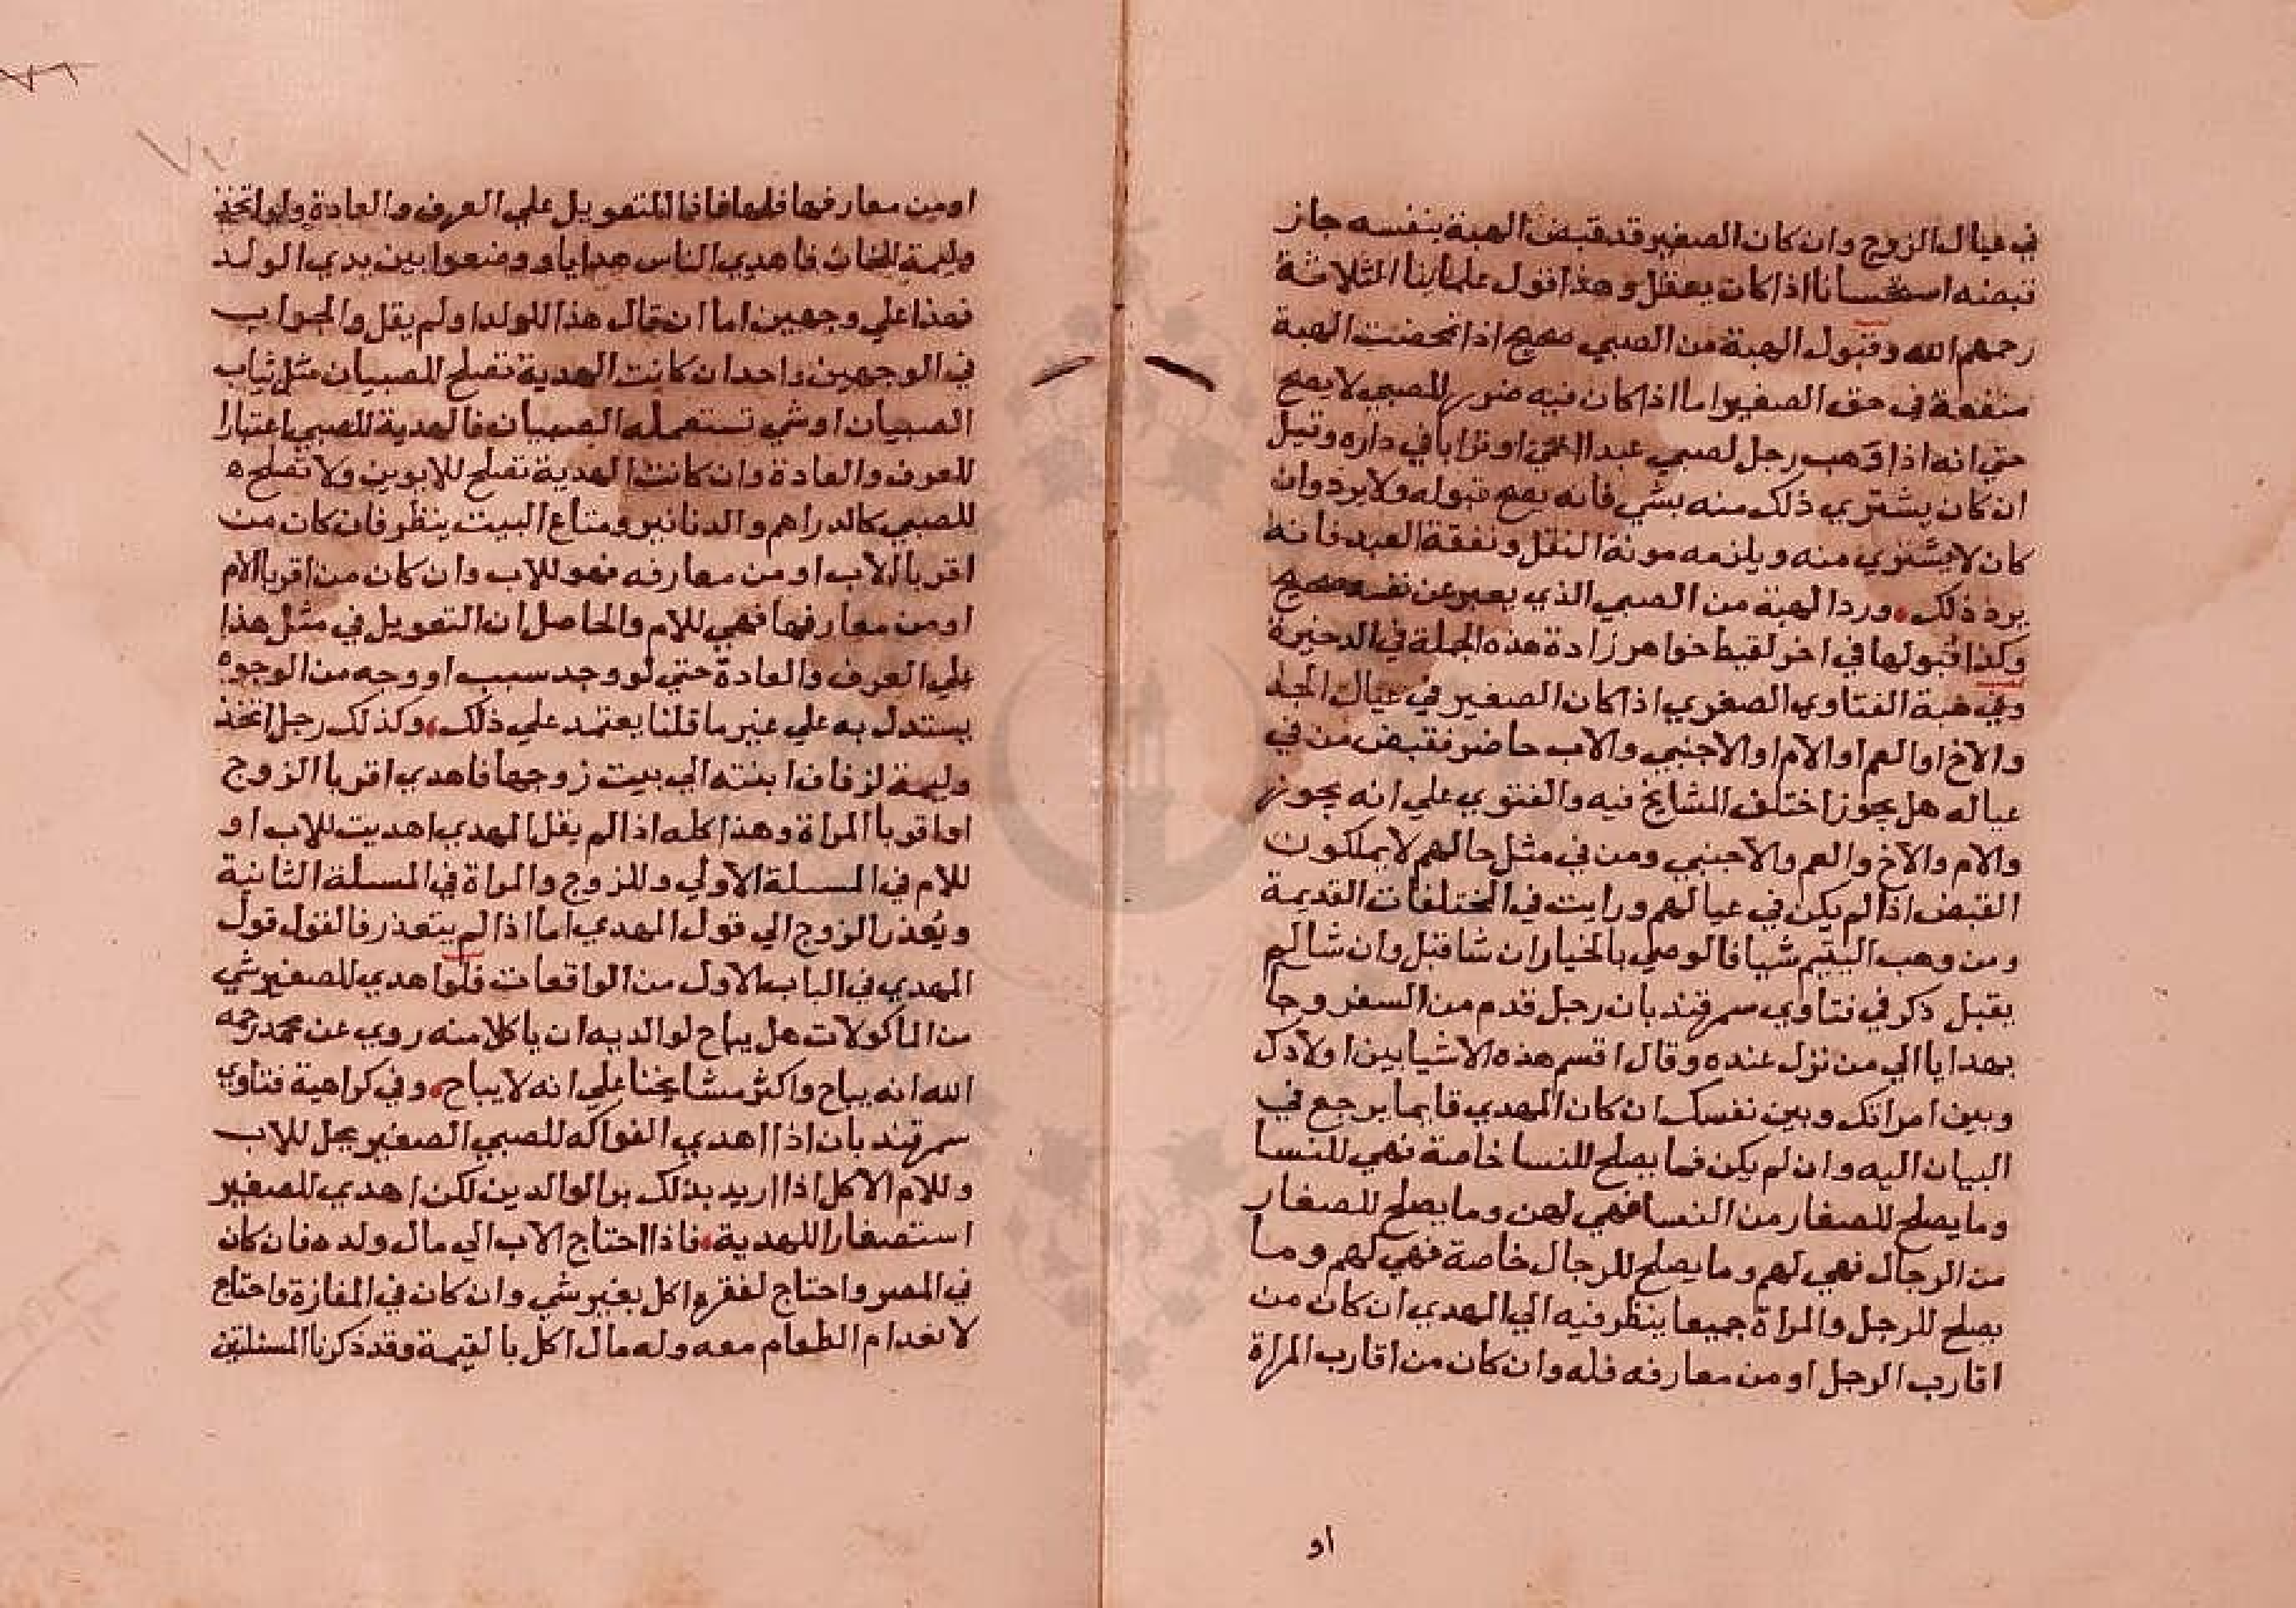 في عيال الزوج وان كان الصغير قد قبض الهبة بنفسه جاز
قبضه استحسانا اذا كان يعقل وهذا قول علماينا الثلاثة
رحمهم الله وقبول الهبة من الصبي صحيح اذا تمحضت الهبة
منفعة في حق الصغير اما اذا كان فيه ضرر للصبي لا يصح
حتي انه اذا وهب رجل لصبي عبدا اعمي او ترابا في داره وقيل
ان كان يشتري ذلك منه بشي فانه يصح قبوله ولا يرد وان
كان لا يشتري منه ويلزمه مونة النقل ونفقة العبد فانه
يرد ذلك ورد الهبة من الصبي الذي يعبر عن نفسه صحيح
وكذا قبولها في اخر لقيط خواهر زادة هذه الجملة في الدخيرة
وفي هبة الفتاوي الصغري اذا كان الصغير في عيال الجد
والاخ او العم او الام او الاجنبي والاب حاضر فقبض من في
عياله هل يجوز اختلف المشايخ فيه والفتوي علي انه يجوز
والام والاخ والعم والاجنبي ومن في مثل حالهم لا يملكون
القبض اذا لم يكن في عيالهم ورايت في المختلفات القديمة
ومن وهب اليتيم شيا فالوصي بالخيار ان شا قبل وان شا لم
يقبل ذكر في فتاوي سمرقند بان رجل قدم من السفر وجا
بهدايا الي من نزل عنده وقال اقسم هذه الاشيا بين اولادك
وبين امراتك وبين نفسك ان كان المهدي قايما يرجع في
البيان اليه وان لم يكن فما يصلح للنسا خاصة فهي للنسا
وما يصلح للصغار من النسا فهي لهن وما يصلح للصغار
من الرجال فهي لهم وما يصلح للرجال خاصة فهي لهم وما
يصلح للرجل والمراة جميعا ينظر فيه الي المهدي ان كان من
اقارب الرجل او من معارفه فله وان كان من اقارب المراة
او
او من معارفها فلها فاذا التعويل علي العرف والعادة ولو اتخذ
وليمة للختان فاهدي الناس هدايا و وضعوا بين يدي الولد
فهذا علي وجهين اما ان قال هذا للولد او لم يقل والجواب
في الوجهين واحد ان كانت الهدية تصلح للصبيان مثل ثياب
الصبيان او شي تستعمله الصبيان فالهدية للصبي اعتبارا
للعرف والعادة وان كانت الهدية تصلح للابوين ولا تصلح ه
للصبي كالدراهم والدنانير ومتاع البيت ينظر فان كان من
اقربا الاب او من معارفه فهو للاب وان كان من اقربا الام
او من معارفها فهي للام والحاصل ان التعويل في مثل هذا
علي العرف والعادة حتي لو وجد سبب او وجه من الوجوه
يستدل به علي غير ما قلنا يعتمد علي ذلك وكذلك رجل اتخذ
وليمة لزفاف ابنته الي بيت زوجها فاهدي اقربا الزوج
او اقربا المراة وهذا كله اذا لم يقل المهدي اهديت للاب او
للام في المسلة الاولي وللزوج والمراة في المسلة الثانية
ويعذر الزوج الي قول المهدي اما اذا لم يتعذر فالقول قول
المهدي في الباب الاول من الواقعات فلو اهدي للصغير شي
من الماكولات هل يباح لوالديه ان ياكلا منه روي عن محمد رحمه
الله انه يباح واكثر مشايخنا علي انه لا يباح وفي كراهية فتاوي
سمرقند بان اذا اهدي الفواكه للصبي الصغير يحل للاب
وللام الاكل اذا اريد بذلك بر الوالدين لكن اهدي للصغير
استصغارا للهدية فاذا احتاج الاب الي مال ولده فان كان
في المصر واحتاج لفقره اكل بغير شي وان كان في المفازة واحتاج
لانعدام الطعام معه وله مال اكل بالقيمة وقد ذكرنا المسئلتين